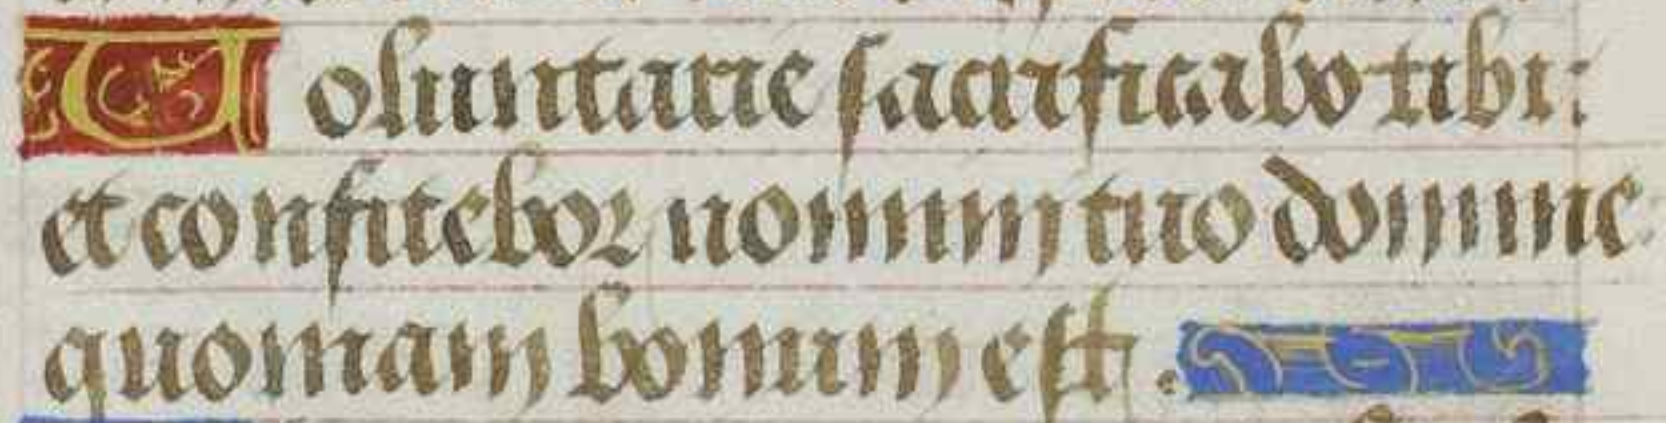 Voluntarie sacrificabo tibi:
et confitebor nomini tuo domine.
quoniam bonum est.